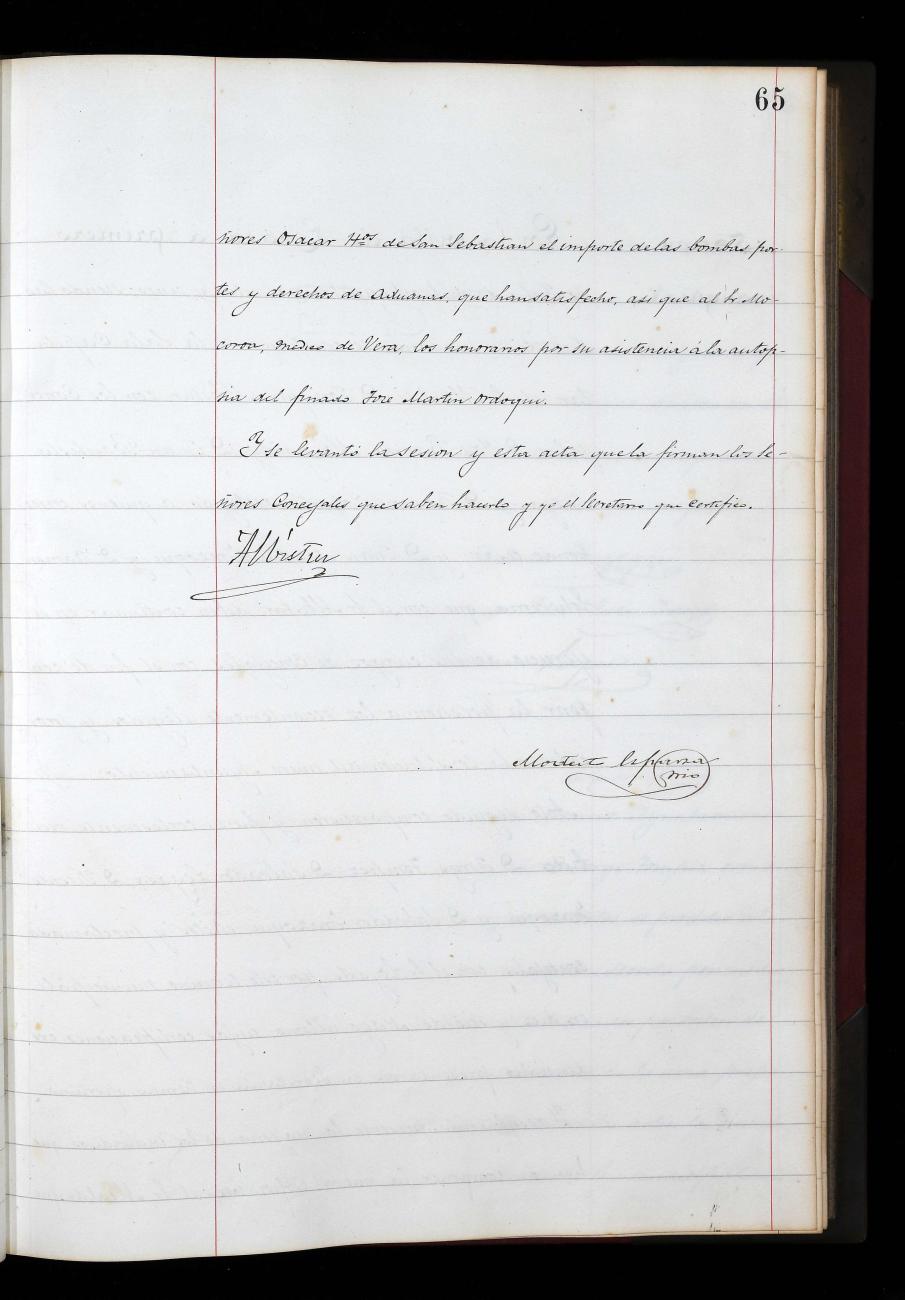 65
ñores Osacar H.os de San Sebastian el importe de las bombas por-
tes y derechos de Aduanas, que han satisfecho, asi que al Sr. Mo-
coroa, medico de Vera, los honorarios por su asistencia á la autop-
sia del finado José Martin Ordoqui.
Y se levantó la sesion y esta acta que la firman los Se-
ñores Concejales que saben hacerlo y yo el Secretario que certifico.
Albistur
Esparza